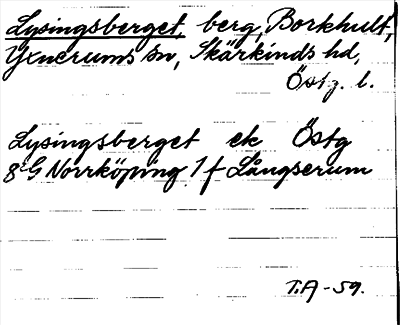 Lysingsberget, berg, Borkhult,
Yxnerums sn, Skärkinds hd,
Östg. l.
Lysingsberget ek Östg
8G Norrköping 1f Långserum
T.A-59.